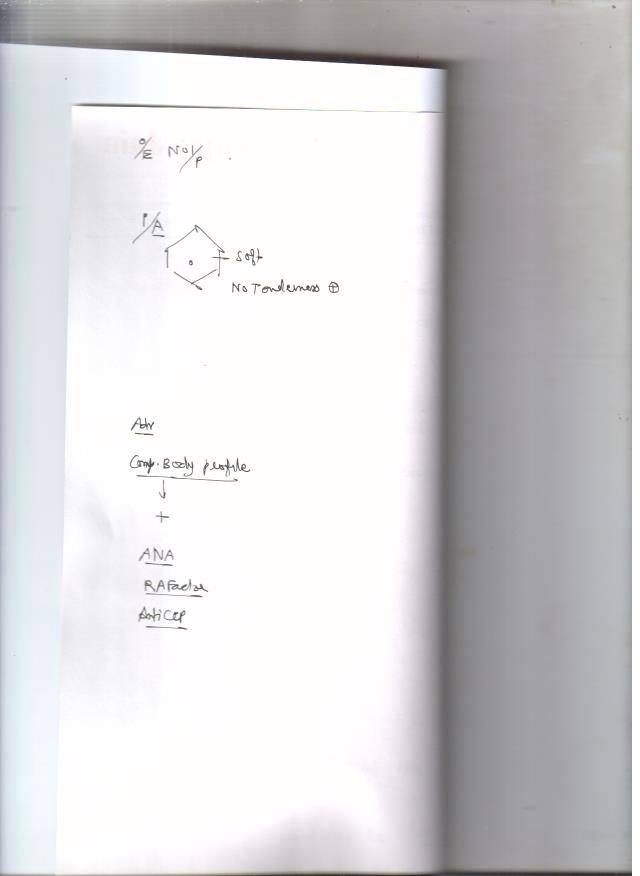 O/E No I/P
P/A
Soft
No Tenderness ⊕
Adv
Comp. Body profile
↓
+
ANA
RA Factor
Anti CCP